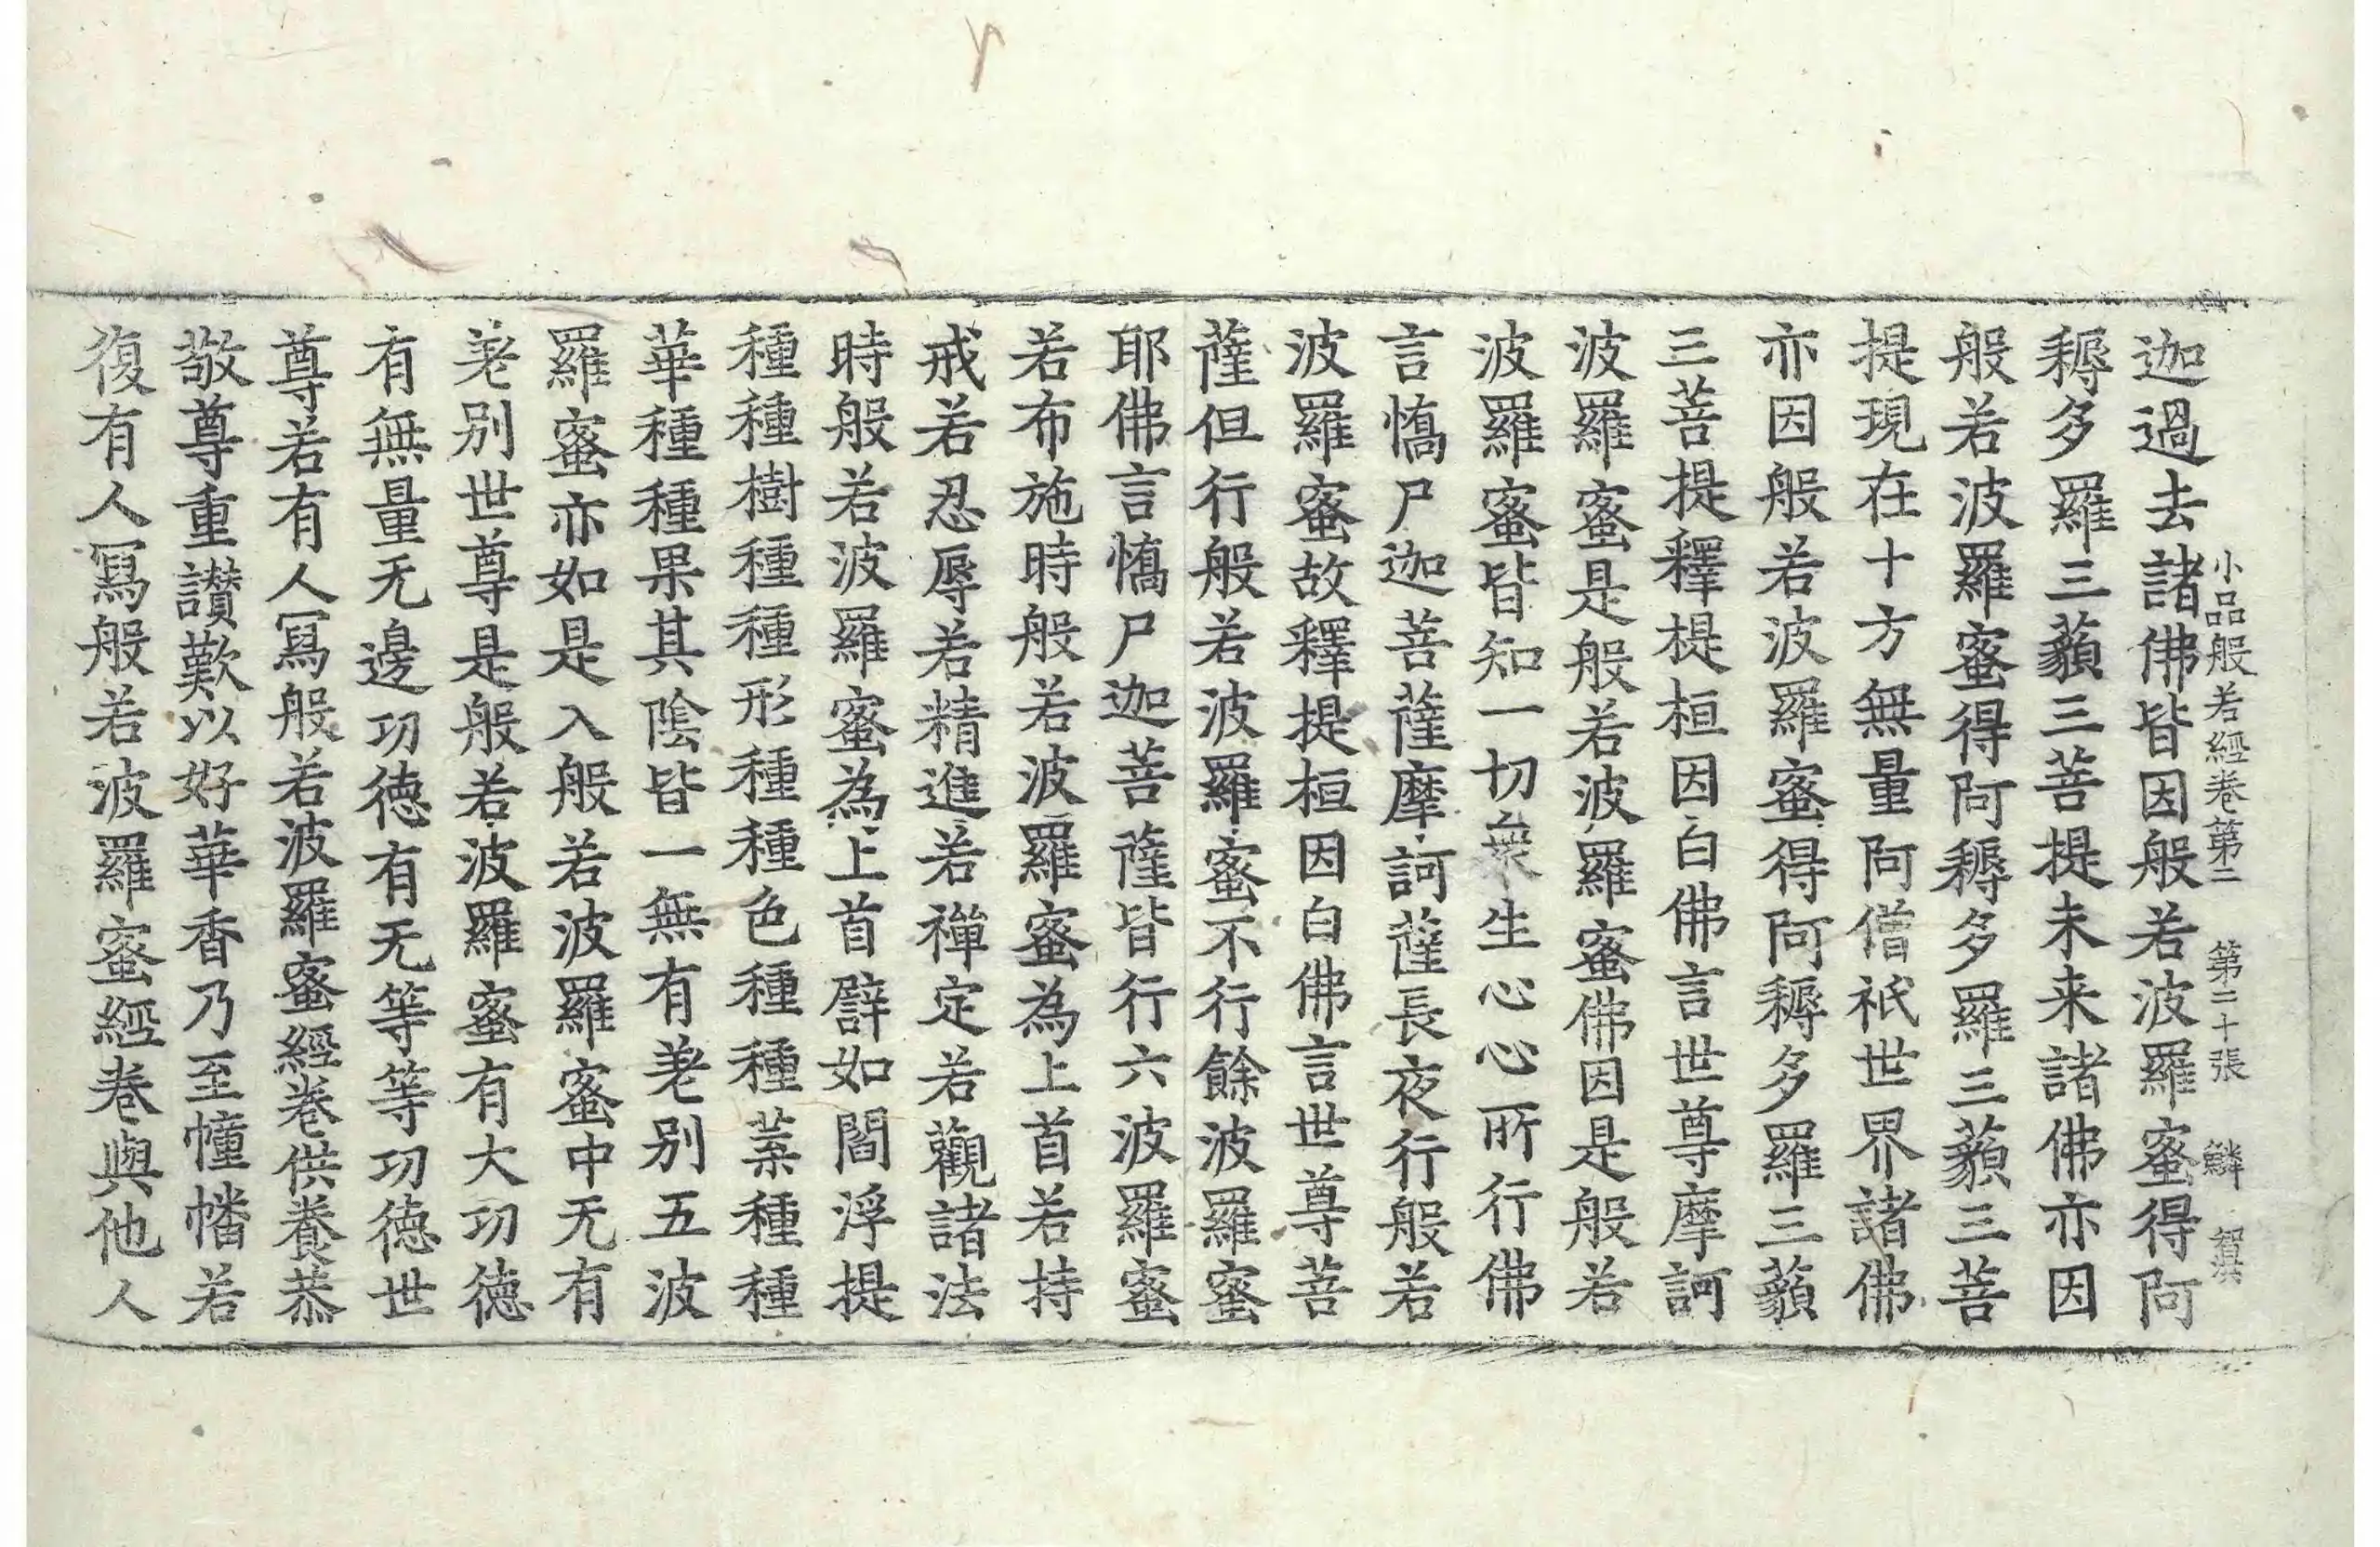 小品般若經卷第二 第二十張 鱗
迦過去諸佛皆因般若波羅蜜得阿
耨多羅三藐三菩提未来諸佛亦因
般若波羅蜜得阿耨多羅三藐三菩
提現在十方無量阿僧祇世界諸佛
亦因般若波羅蜜得阿耨多羅三藐
三菩提釋提桓因白佛言世尊摩訶
波羅蜜是般若波羅蜜佛因是般若
波羅蜜皆知一切衆生心心所行佛
言憍尸迦菩薩摩訶薩長夜行般若
波羅蜜故釋提桓因白佛言世尊菩
薩但行般若波羅蜜不行餘波羅蜜
耶佛言憍尸迦菩薩皆行六波羅蜜
若布施時般若波羅蜜為上首若持
戒若忍辱若精進若禪定若觀諸法
時般若波羅蜜為上首譬如閻浮提
種種樹種種形種種色種種葉種種
華種種果其陰皆一無有差别五波
羅蜜亦如是入般若波羅蜜中无有
差别世尊是般若波羅蜜有大功德
有無量无邊功德有无等等功德世
尊若有人寫般若波羅蜜經卷供養恭
敬尊重讃歎以好華香乃至幢幡若
復有人寫般若波羅蜜經卷與他人